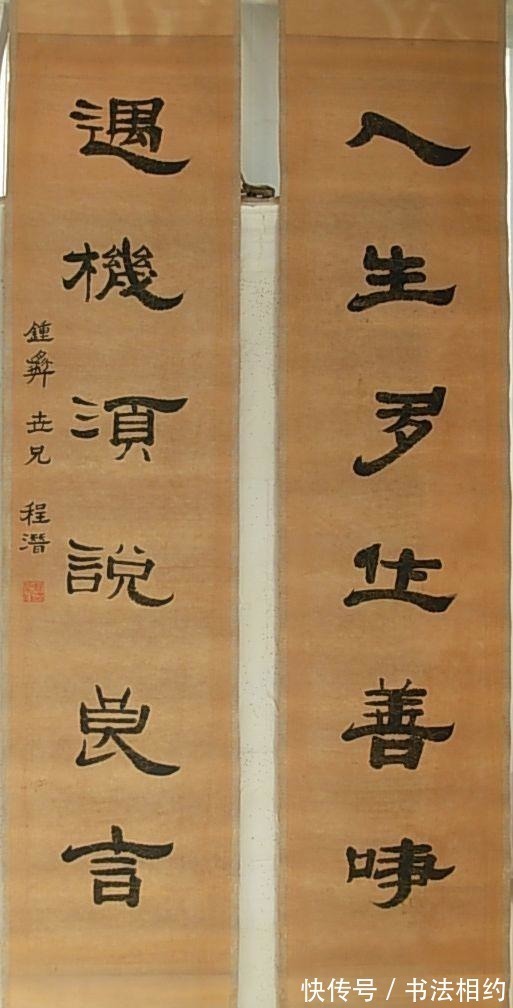 人生多作善事
遇機須說良言
鍾彝世兄 程潛
快传号 / 书法相约